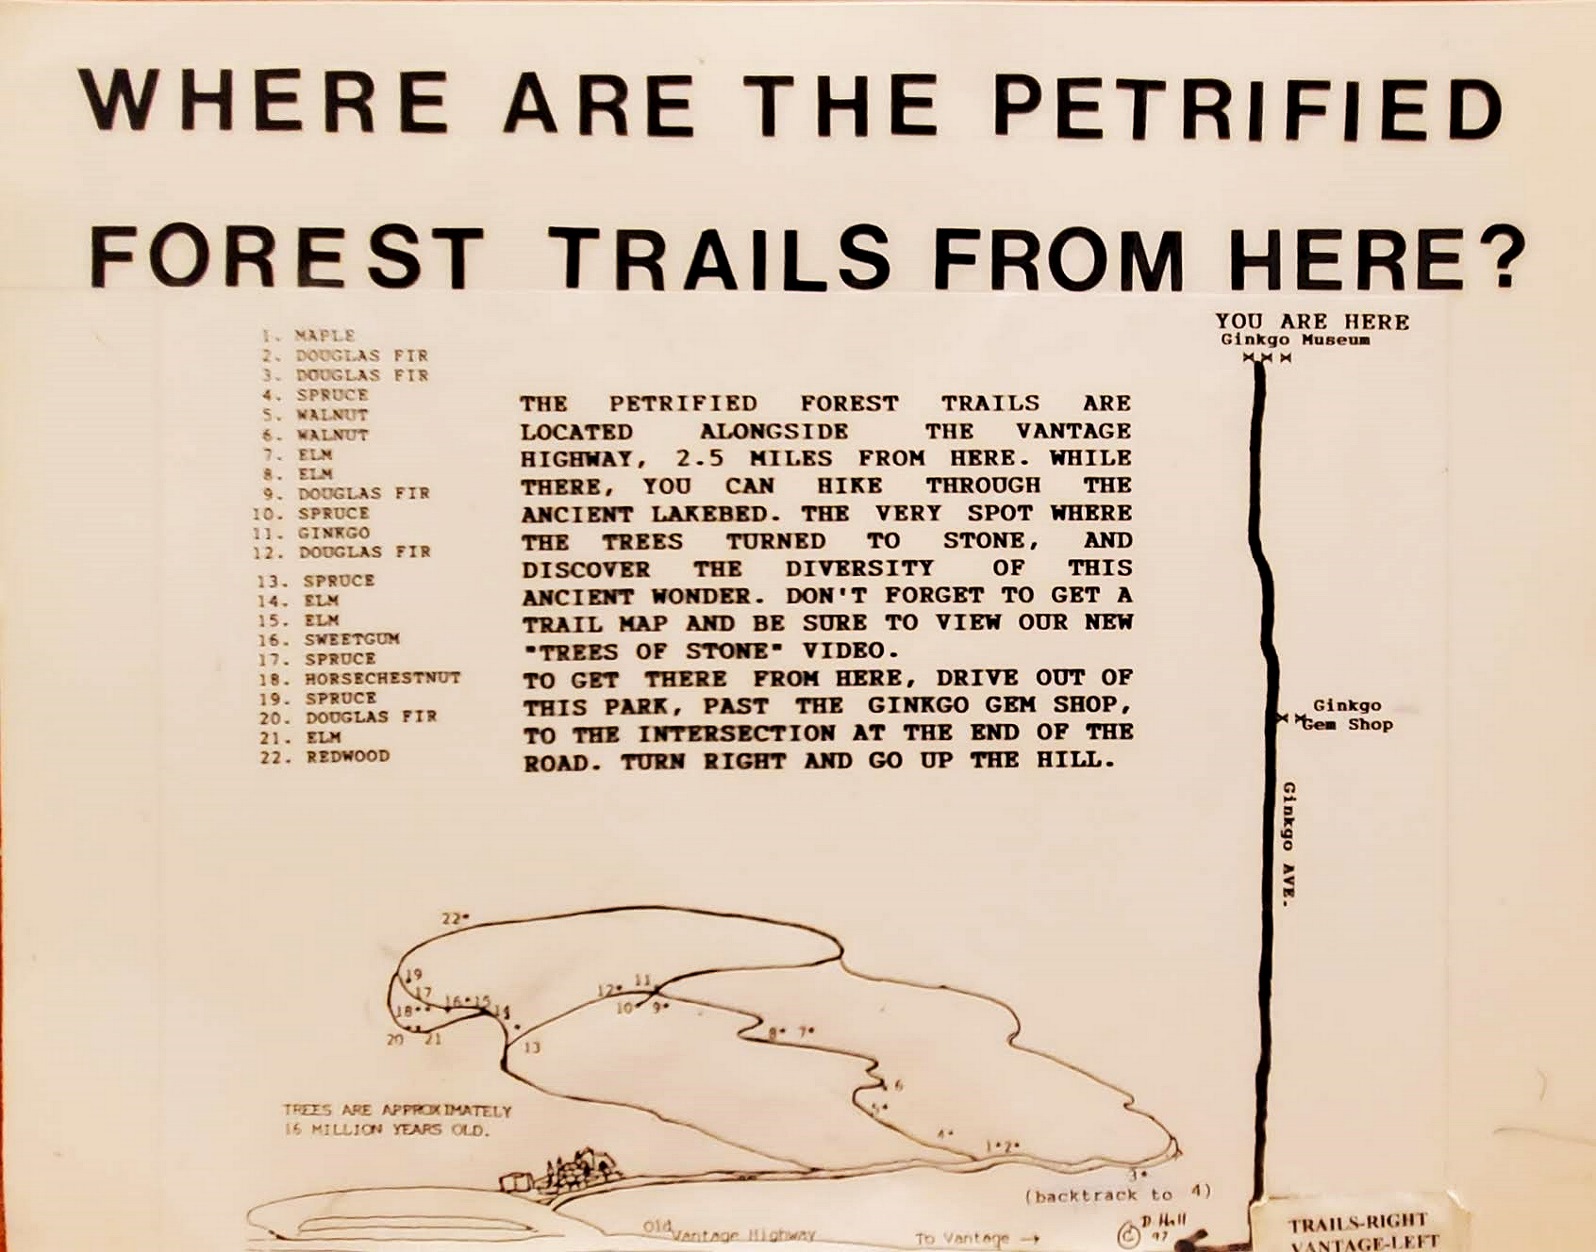 WHERE ARE THE PETRIFIED
FOREST TRAILS FROM HERE?
YOU ARE HERE
Ginkgo Museum
1. MAPLE
2. DOUGLAS FIR
3. DOUGLAS FIR
4. SPRUCE
5. WALNUT
6. WALNUT
7. ELM
8. ELM
9. DOUGLAS FIR
10. SPRUCE
11. GINKGO
12. DOUGLAS FIR
13. SPRUCE
14. ELM
15. ELM
16. SWEETGUM
17. SPRUCE
18. HORSECHESTNUT
19. SPRUCE
20. DOUGLAS FIR
21. ELM
22. REDWOOD
THE PETRIFIED FOREST TRAILS ARE
LOCATED ALONGSIDE THE VANTAGE
HIGHWAY, 2.5 MILES FROM HERE. WHILE
THERE, YOU CAN HIKE THROUGH THE
ANCIENT LAKEBED. THE VERY SPOT WHERE
THE TREES TURNED TO STONE, AND
DISCOVER THE DIVERSITY OF THIS
ANCIENT WONDER. DON'T FORGET TO GET A
TRAIL MAP AND BE SURE TO VIEW OUR NEW
"TREES OF STONE" VIDEO.
TO GET THERE FROM HERE, DRIVE OUT OF
THIS PARK, PAST THE GINKGO GEM SHOP,
TO THE INTERSECTION AT THE END OF THE
ROAD. TURN RIGHT AND GO UP THE HILL.
Ginkgo
Gem Shop
Ginkgo AVE.
22
19
17
18
16 15
14
20 21
13
12 11
10 9
8 7
6
5
4
1 2
3
TREES ARE APPROXIMATELY
16 MILLION YEARS OLD.
(backtrack to 4)
Old Vantage Highway
To Vantage →
© D Hall
97
TRAILS-RIGHT
VANTAGE-LEFT